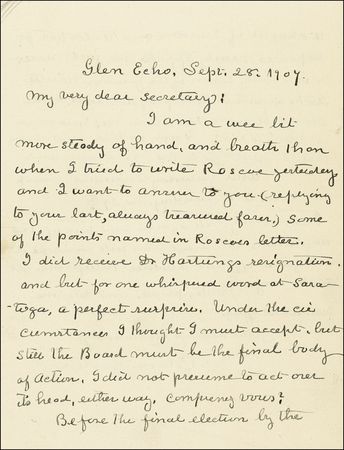 Glen Echo, Sept. 28. 1907.
My very dear Secretary:
I am a wee bit
more steady of hand, and breath than
when I tried to write Roscoe yesterday
and I want to answer to you (replying
to your last, always treasured favor,) some
of the points named in Roscoes letter.
I did receive Dr Hartungs resignation.
and but for one whispered word at Sara-
-toga, a perfect surprise. Under the cir
cumstances I thought I must accept. but
still the Board must be the final body
of Action. I did not presume to act over
its head, either way. vous?
Before the final election by the